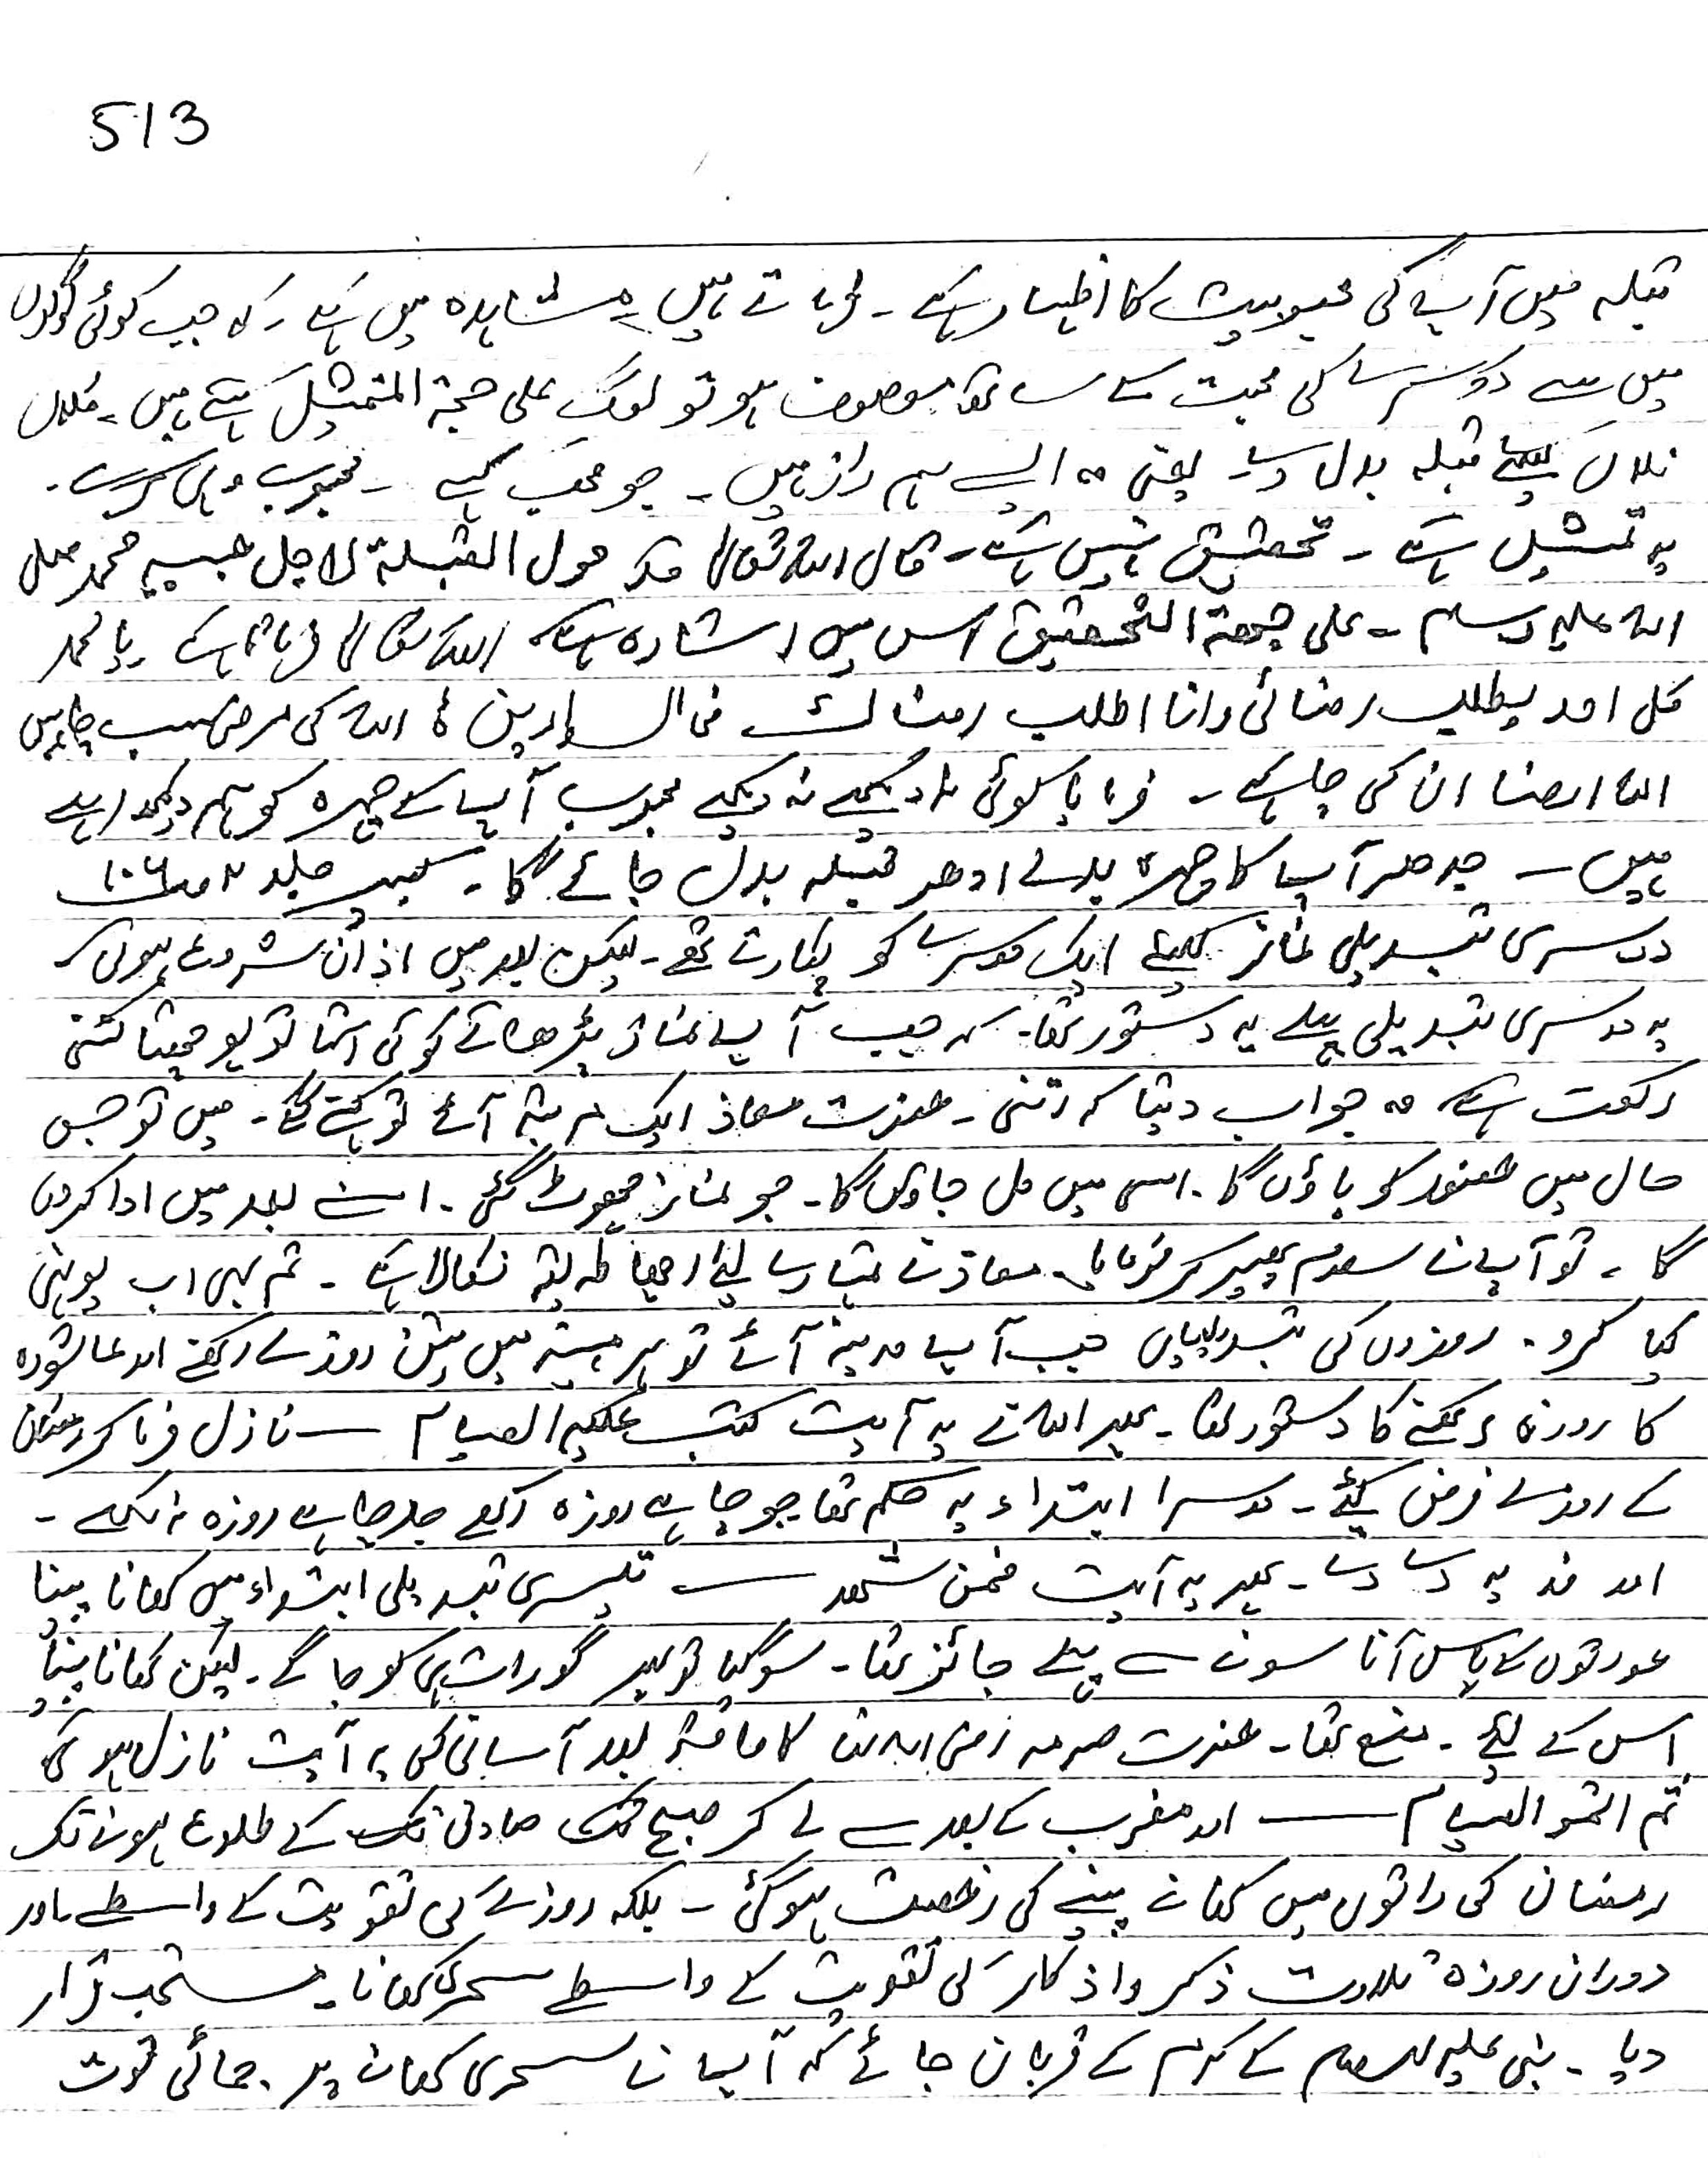 513
قبلہ میں آپ کی محبوبیت کا اظہار ہے ۔ فرماتے ہیں یہ مشاہدہ میں ہے ۔ کہ جب کوئی لوگوں
میں سے دوسرے کی محبت کے ساتھ موصوف ہو تو لوگ علی جھۃ المتمثیل کہتے ہیں ۔ فلاں
فلاں کیلئے قبلہ بدل دیا ۔ یعنی وہ ایسے ہم راز ہیں ۔ جو محب کہے ۔ محبوب وہی کرے ۔
یہ تمثیل ہے ۔ تحقیق نہیں ہے ۔ قال اللہ تعالیٰ قد حول القبلۃ لاجل حبیبہ محمد صلی
اللہ علیہ وسلم ۔ علی جھۃ التحقیق اس میں اشارہ ہے کہ اللہ تعالیٰ فرماتا ہے یا محمد
کل احد یطلب رضائی وانا اطلب رضاک فی الدارین کہ اللہ کی مرضی سب چاہیں
اللہ رضا ان کی چاہے ۔ فرمایا کوئی دیکھے نہ دیکھے محبوب آپ کے چہرہ کو ہم دیکھ رہے
ہیں ۔ جدھر آپ کا چہرہ بدلے ادھر قبلہ بدل جائے گا ۔ کبیر جلد ۲ ص ۱۰۶
دوسری تبدیلی نماز کیلئے ایک دوسرے کو پکارتے تھے ۔ لیکن بعد میں اذان شروع ہوئی ۔
یہ دوسری تبدیلی پہلے یہ دستور تھا ۔ کہ جب آپ نماز پڑھاتے کوئی آتا تو پوچھتا کتنی
رکعت ہے وہ جواب دیتا کہ اتنی ۔ حضرت معاذ ایک مرتبہ آئے تو کہنے لگے ۔ میں تو جس
حال میں حضور کو پاؤں گا ۔ اسی میں مل جاؤں گا ۔ جو نماز چھوٹ گئی ۔ اسے بعد میں ادا کروں
گا ۔ تو آپ نے سلام پھیر کر فرمایا ۔ معاذ نے تمہارے لیئے اچھا طریقہ نکالا ہے ۔ تم بھی اب یونہی
کیا کرو ۔ روزوں کی تبدیلیاں جب آپ مدینہ آئے تو ہر مہینہ میں تین روزے رکھتے اور عاشورہ
کا روزہ رکھنے کا دستور تھا ۔ پھر اللہ نے یہ آیت کتب علیکم الصیام — نازل فرما کر رمضان
کے روزے فرض کیئے ۔ دوسرا ابتداء یہ حکم تھا جو چاہے روزہ رکھے جو چاہے روزہ نہ رکھے ۔
اور فدیہ دے دے ۔ پھر یہ آیت فمن شھد — تیسری تبدیلی ابتداء میں کھانا پینا
عورتوں کے پاس آنا سونے سے پہلے جائز تھا ۔ سو گیا تو پھر گو رات ہی کو جاگے ۔ لیکن کھانا پینا
اس کے لیئے ۔ منع تھا ۔ حضرت صرمہ رضی اللہ عنہ کا واقعہ بعد آسانی کی یہ آیت نازل ہوئی
ثم اتمو الصیام — اور مغرب کے بعد سے لے کر صبح صادق تک کے طلوع ہونے تک
رمضان کی راتوں میں کھانے پینے کی رخصت ہوگئی ۔ بلکہ روزے کی تقویت کے واسطے اور
دوران روزہ تلاوت ذکر واذکار کی تقویت کے واسطے سحری کھانا مستحب قرار
دیا ۔ نبی علیہ السلام کے کرم کے قربان جائے کہ آپ نے سحری کھانے پر جمائی قوت